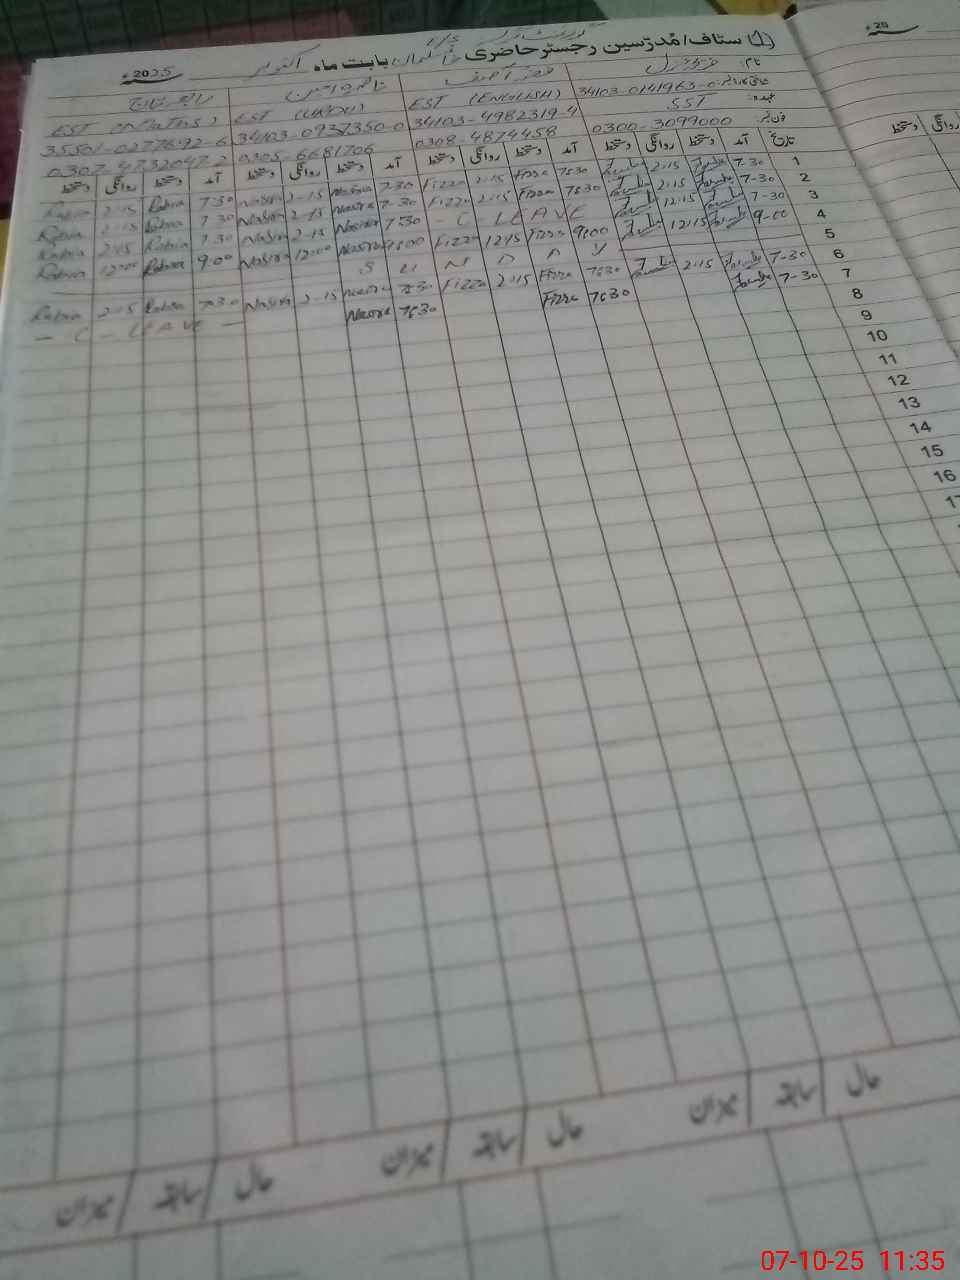 (1) ستاف/مُدرّسین رجسٹر حاضری بابت ماہ اکتوبر 2025ء
نام:
شناختی کارڈ نمبر: 34103-0141963-0
عہدہ: SST EST (ENGLISH) EST (URDU) EST (MATHS)
34103-4982319-4 34103-0937350-0 35501-0277692-6
فون نمبر: 0300-3099000 0308-4874458 0305-6681706 0307-4732047-2
تاریخ آمد دستخط روانگی دستخط آمد دستخط روانگی دستخط آمد دستخط روانگی دستخط آمد دستخط روانگی دستخط
1 7-30 2:15 7:30 Fizza 2:15 Fizza 7-30 Nasira 2-15 Nasira 7:30 Rabia 2:15 Rabia
2 7-30 2:15 7:30 Fizza 2:15 Fizza 7-30 Nasira 2-15 Nasira 7:30 Rabia 2:15 Rabia
3 7-30 12:15 - C - LEAVE 7:30 Nasira 2-15 Nasira 7:30 Rabia 2:15 Rabia
4 9-00 12:15 9:00 Fizza 12:15 Fizza 9:00 Nasira 12:00 Nasira 9:00 Rabia 12:00 Rabia
5 S U N D A Y
6 7-30 2:15 7:30 Fizza 2:15 Fizza 7:30 Nasira 2-15 Nasira 7:30 Rabia 2:15 Rabia
7 7-30 7:30 Fizza 7:30 Nasira - C - LEAVE -
8
9
10
11
12
13
14
15
16
17
حال سابقہ میزان حال سابقہ میزان حال سابقہ میزان
20ء
روانگی دستخط
07-10-25 11:35